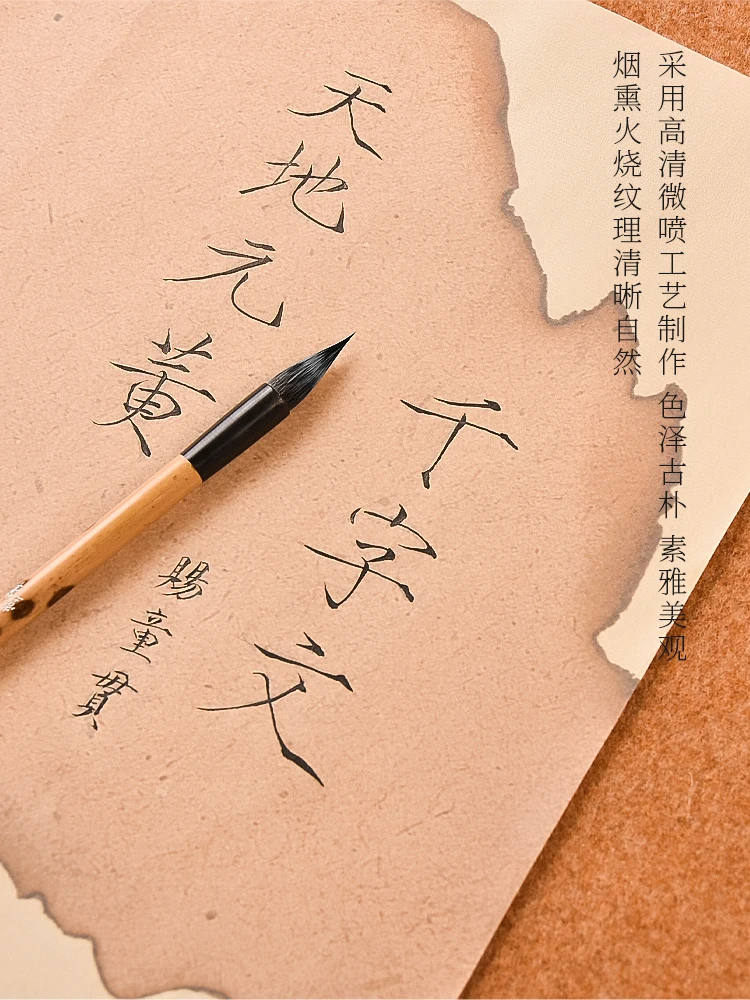 采用高清微喷工艺制作 色泽古朴 素雅美观
烟熏火烧纹理清晰自然
千字文
賜童貫
天地元黄